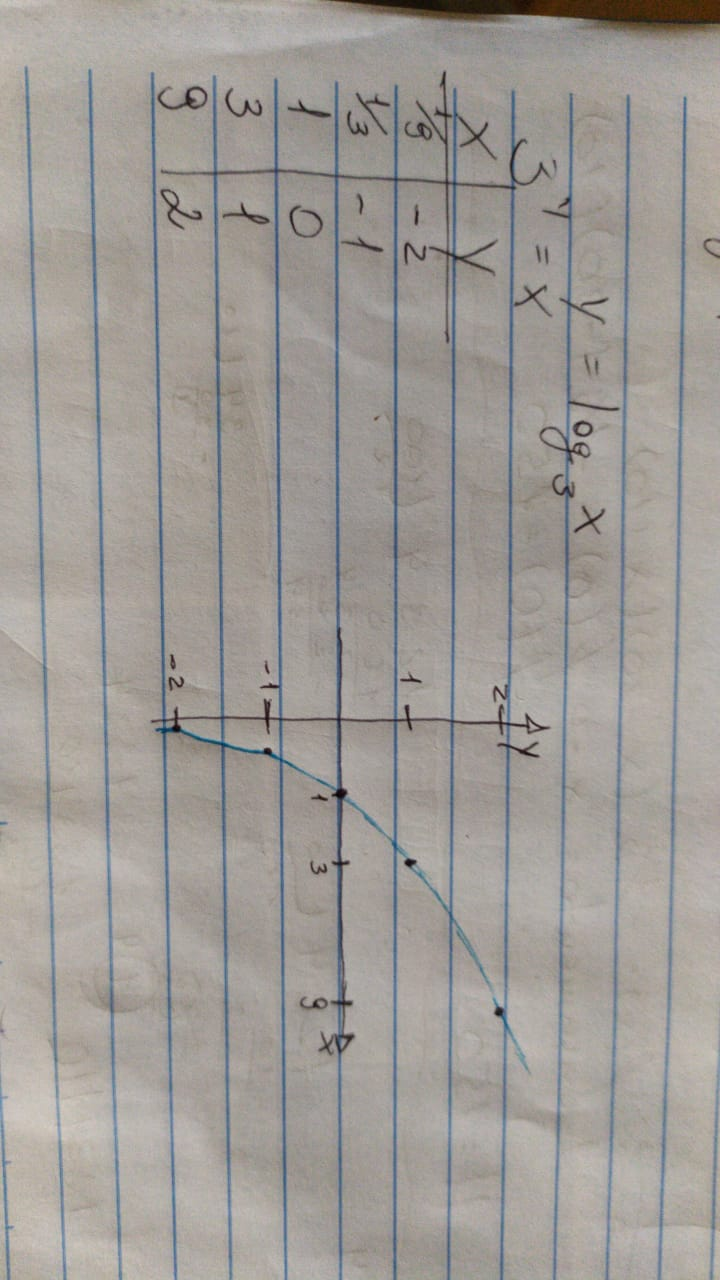 y = log₃ x
3^y = x
x | y
1/9 | -2
1/3 | -1
1 | 0
3 | 1
9 | 2
y
2
1
1 3 9 x
-1
-2